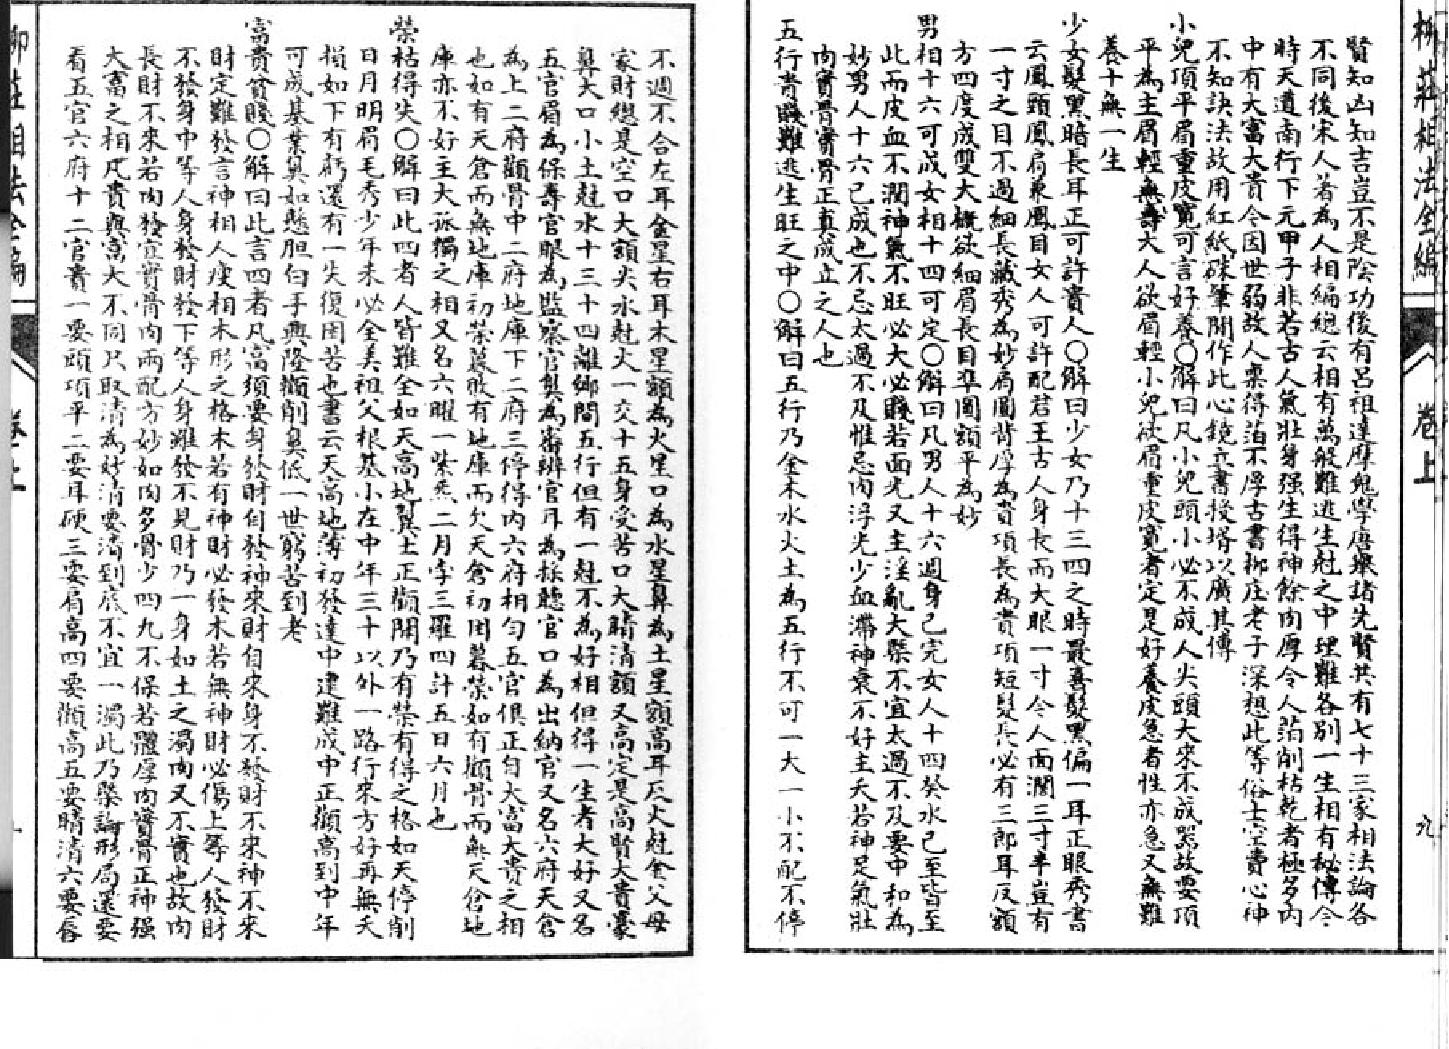 柳莊相法全編
卷上
九
賢知凶知吉豈不是陰功後有呂祖達摩鬼學唐舉諸先賢共有七十三家相法論各
不同後宋人著為人相編總云相有萬般難逃生尅之中理難各別一生相有秘傳今
時天遣南行下元甲子非若古人氣壯身强生得神餘肉厚今人箔削枯乾者極多內
中有大富大貴令因世弱故人稟得箔不厚古書柳庄老子深想此等俗士空費心神
不知訣法故用紅紙硃筆開作此心鏡立書授壻以廣其傳
小兒項平眉重皮寬可言好養〇解曰凡小兒頭小必不成人尖頭大來不成器故要頂
平為主眉輕無壽大人欲眉輕小兒欲眉重皮寬者定是好養皮急者性亦急又無難
養十無一生
少女髮黑暗長耳正可許貴人〇解曰少女乃十三四之時最喜髮黑偏一耳正眼秀書
云鳳頭鳳肩兼鳳目女人可許配君王古人身長而大眼一寸今人面濶三寸半豈有
一寸之目不過細長藏秀為妙肩圓背厚為貴項長為貴項短髮長必有三郎耳反額
方四度成雙大概欲細眉長目準圓額平為妙
男相十六可成女相十四可定〇解曰凡男人十六週身已完女人十四癸水已至皆至
此而皮血不潤神氣不旺必大必賤若面光又主淫亂大槩不宜太過不及要中和為
妙男人十六已成也不忌太過不及惟忌肉浮光少血滯神衰不好主夭若神足氣壯
肉實骨實骨正直成立之人也
五行青賤難逃生旺之中〇解曰五行乃金木水火土為五行不可一大一小不配不停
不週不合左耳金星右耳木星額為火星口為水星鼻為土星額高耳反火尅金父母
家財總是空口大額尖水尅火一交十五身受苦口大睛清額又高定是高賢大貴豪
鼻大口小土尅水十三十四離鄉閭五行但有一尅不為好相但得一生者大好又名
五官眉為保壽官眼為監察官鼻為審辨官耳為採聽官口為出納官又名六府天倉
為上二府顴骨中二府地庫下二府三停得內六府相勻五官俱正自大富大貴之相
也如有天倉而無地庫初榮暮敗有地庫而欠天倉初困暮榮如有顴骨而無天倉地
庫亦不好主大孤獨之相又名六曜一紫炁二月孛三羅四計五日六月也
榮枯得失〇解曰此四者人皆難全如天高地巽土正顴開乃有榮有得之格如天停削
日月明眉毛秀少年未必全美祖父根基小在中年三十以外一路行來方好再無夭
損如下有虧還有一失復困苦也書云天高地薄初發達中建難成中正顴高到中年
可成基業鼻如懸胆白手興隆顴削鼻低一世窮苦到老
富貴貧賤〇解曰此言四者凡富須要身發財自發神來財自來身不發財不來神不來
財定難發言神相人瘦相木形之格木若有神財必發木若無神財必傷上等人發財
不發身中等人身發財發下等人身雖發不見財乃一身如土之濁肉又不實也故肉
長財不來若肉發宜實骨肉兩配方妙如肉多骨少四九不保若體厚肉實骨正神强
大畜之相凡貴與富大不同只取清為妙清要清到底不宜一濁此乃槩論形局還要
看五官六府十二官貴一要頭項平二要耳硬三要肩高四要顴高五要睛清六要唇
柳莊相法全編
卷上